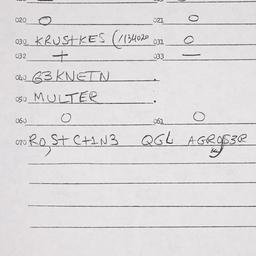 020 O 021 O
030 KRUSTKES (1134020 031 O
032 + 033 —
040 G3KNETN .
050 MULTER .
060 O 061 O
070 RO, ST C+1N3 QGL